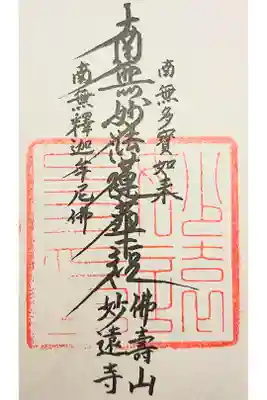 南無多寳如来
南無妙法蓮華経
南無釋迦牟尼佛
佛壽山
妙遠寺